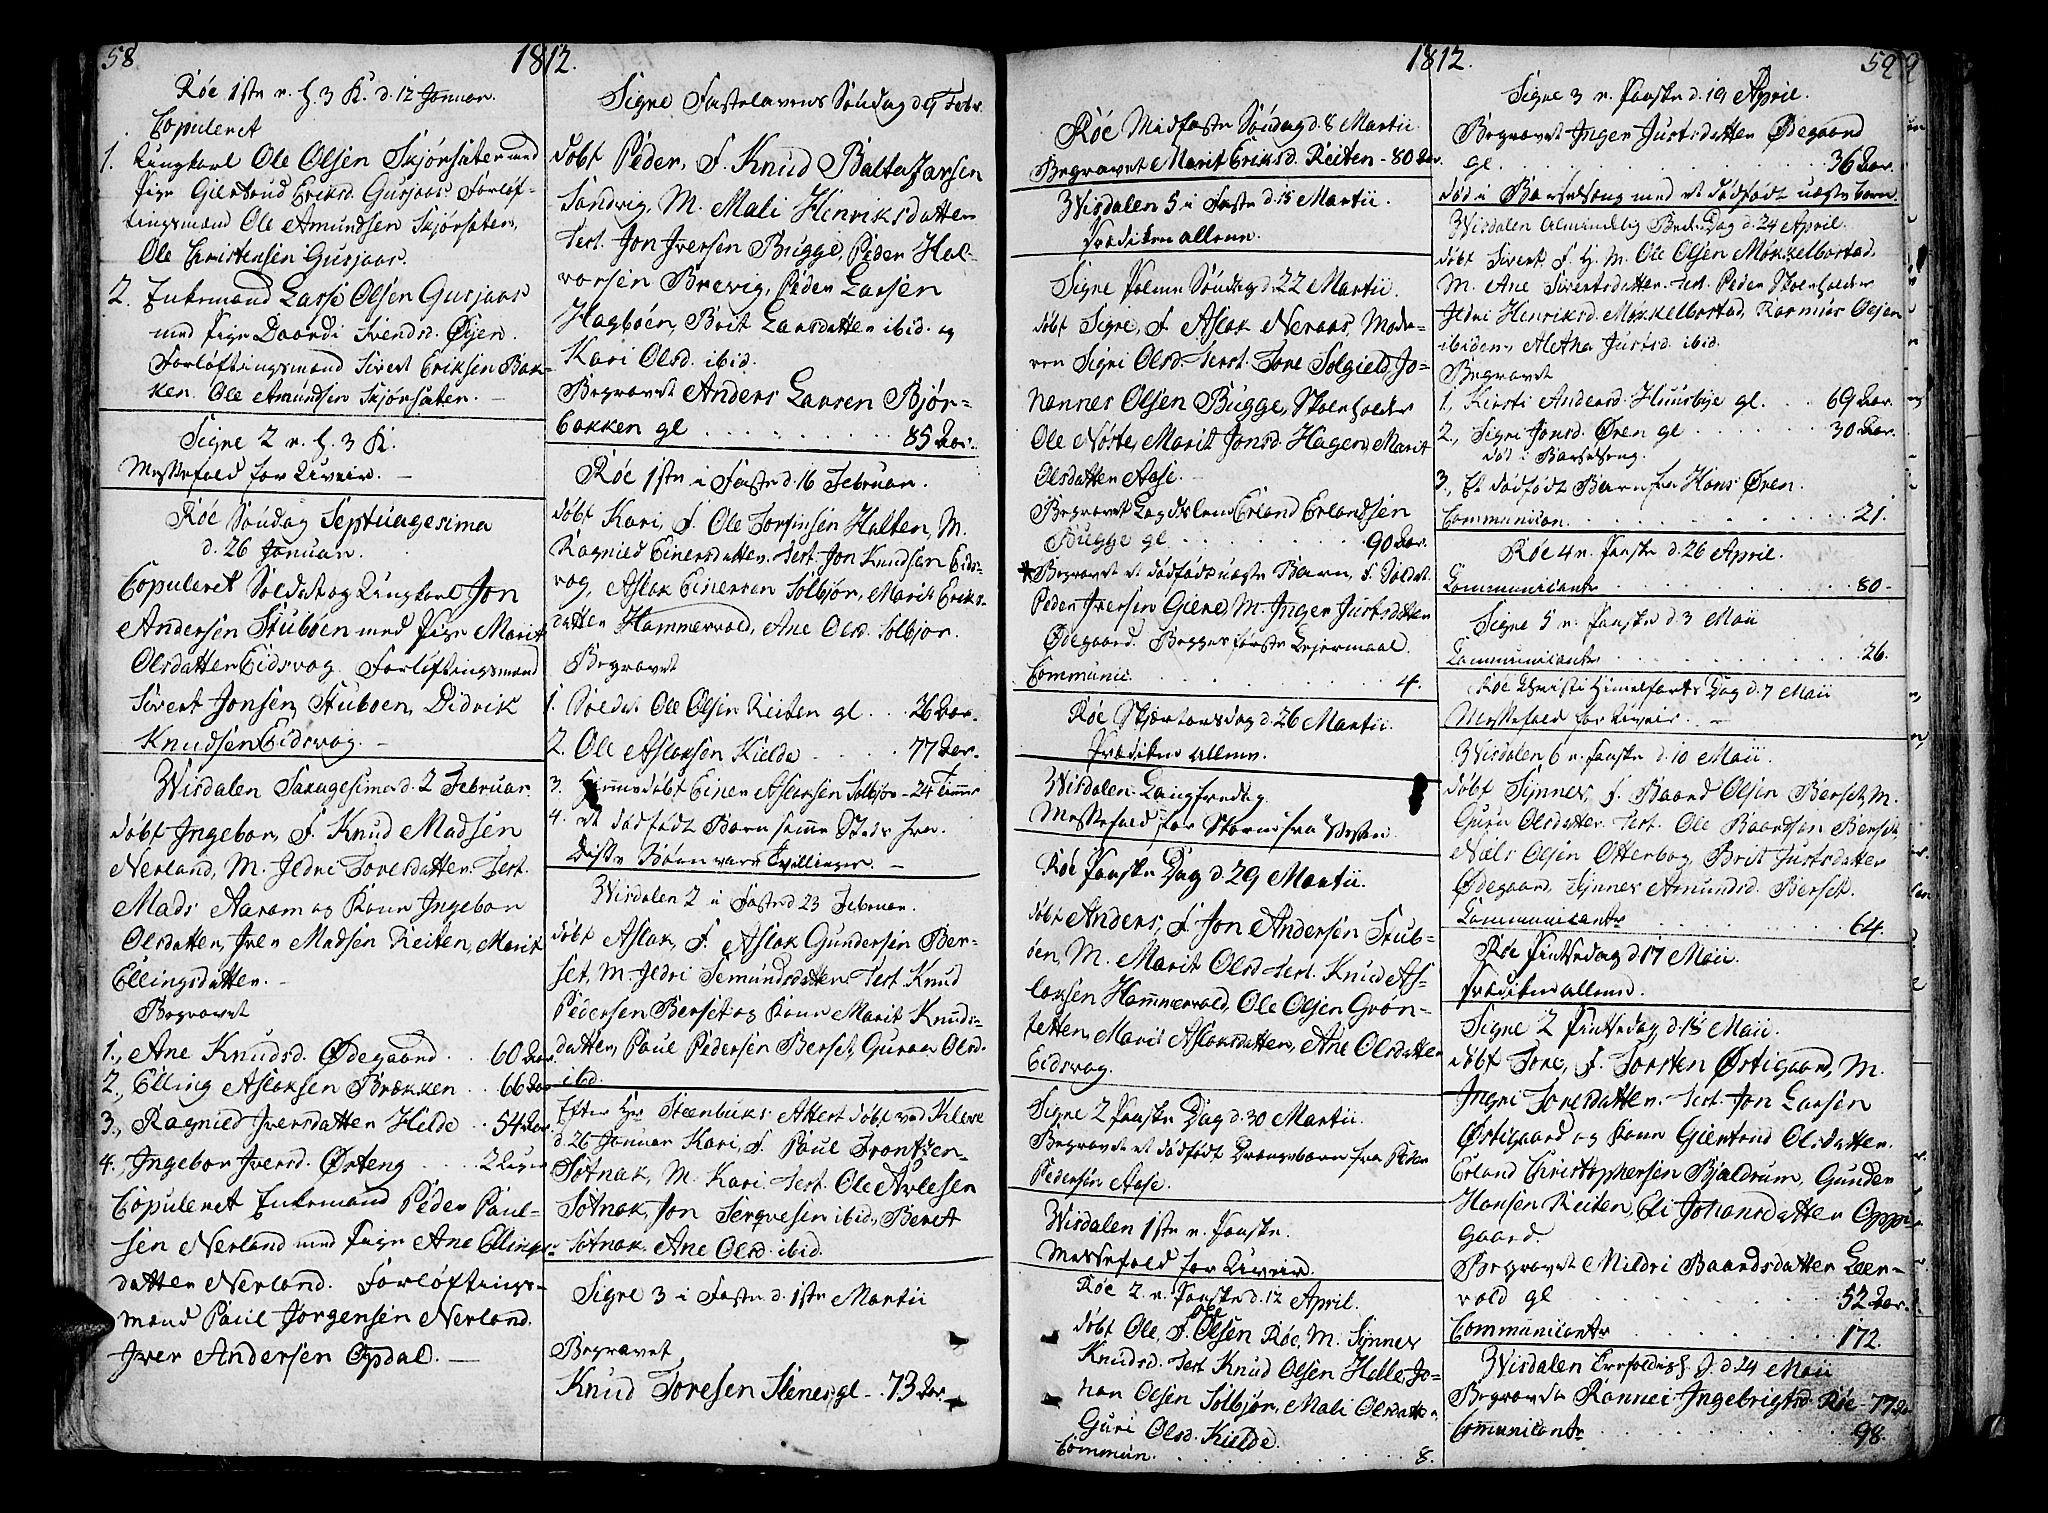 58
1812.
Røe 1ste n. H. 3 K. d. 12 Januar.
Copuleret
1. Ungkarl Ole Olsen Skjørsæter med
Pige Giertrud Eriksd. Gusjaas. Forløf-
tingsmænd Ole Amundsen Skjørsæter,
Ole Christensen Gusjaas.
2. Enkemand Lars Olsen Gusjaas
med Pige Baardi Svendsd. Øyen.
Forløftingsmænd Sivert Eriksen Bak-
ken. Ole Amundsen Skjørsæter. —
Signe 2 n. H. 3 K.
Messefald for Uveir. —
Røe Søndag Septuagesima
d. 26 Januar.
Copuleret Soldat og Ungkarl Jon
Andersen Stuboen med Pige Marit
Olsdatter Eidsvog. Forløftingsmænd
Sivert Jonsen Stuboen, Didrik
Knudsen Eidsvog. —
Wisdalen Sexagesima d. 2 Februar.
døbt Ingebor, F. Knud Madsen
Nerland, M. Jldri Toresdatter. Test.
Mads Aaram og Kone Ingebor
Olsdatter, Iver Madsen Reiten, Marit
Ellingsdatter. —
Begravet
1., Ane Knudsd. Ødegaard. . . 60 Aar
2., Elling Aslaksen Brækken . . 66 Aar
3., Ragnied Iversdatter Hilde . . 54 Aar.
4., Ingebor Iversd. Østeng . . . . 2 Uger
Copuleret Enkemand Peder Paul-
sen Nerland med Pige Ane Ellings-
datter Nerland. Forløftings-
mænd Paul Jørgensen Nerland.
Iver Andersen Opdal. —
Signe Fastelavens Søndag d 9 Febr.
døbt Peder, F. Knud Baltazarsen
Sandvig, M. Mali Henriksdatter
Test. Jon Iversen Bugge, Peder Hal-
vorsen Brevig, Peder Larsen
Hagbøen, Brit Larsdatter ibid. og
Kari Olsd. ibid.
Begravet Anders Larsen Bjør-
bakken gl . . . . . . . . 85 Aar.
Røe 1ste i Faste d. 16 Februar.
døbt Kari, F. Ole Torfinsen Halten, M.
Ragnied Einersdatter. Test. Jon Knudsen Eids-
vog, Aslak Einersen Solbjør, Marit Eriks-
datter Hammervold, Ane Olsd. Solbjør.
Begravet
1. Soldat Ole Olsen Reiten gl . . . 26 Aar.
2. Ole Aslaksen Kielde . . . . 77 Aar.
3. Hiemedøbt Einer Aslaksen Solbjør - 24 Timer
4. et dødfødt Barn samme Steds fra.
disse Børn vare Tvillinger. —
Wisdalen 2 i Faste d 23 Februar.
døbt Aslak, F. Aslak Gundersen Ber-
set, M. Jldri Semundsdatter. Test. Knud
Pedersen Berset og Kone Marit Knuds-
datter, Paul Pedersen Berset, Guraa Olsd.
ibd.
Efter Hr Steenbuks Attest døbt ved Kleve
d. 26 Januar Kari, F. Paul Frontsen-
Sotnak, M. Kari. Test. Ole Arlesen
Sotnak, Jon Sergvesen ibid, Beret
Sotnak. Ane Olsd. ibid.
Signe 3 i Faste d. 1ste Martii
Begravet
Knud Toresen Stenes gl - . 73 Aar.
1812.
59
Røe Midfaste Søndag d. 8 Martii.
Begravet Marit Eriksd. Reiten - 80 Aar.
Wisdalen 5 i Faste d. 15 Martii.
Prædiken allene.
Signe Palme Søndag d. 22 Martii.
døbt Signe, F. Aslak Neraas, Mode-
ren Signi Olsd. Test. Tore Solgield, Jo-
hannes Olsen Bugge, Skoleholder
Ole Nøste, Marit Jonsd. Hagen, Marit
Olsdatter Aase. -
Begravet Lægdslem Erland Erlandsen
Bugge gl . . . . . . . . 90 Aar.
* Begravet et dødfødt uægte Barn, F. Soldat
Peder Iversen Giere, M. Inger Justsdatter
Ødegaard. Begges første Lejermaal.
Communic. . . . . . . . . . 4.
Røe Skjærtorsdag d. 26 Martii.
Prædiken allene.
Wisdalen Langfredag.
Messefald for Storm fra Vesten.
Røe Paaske Dag d. 29 Martii.
døbt Anders, F. Jon Andersen Stub-
øen, M. Marit Olsd. Test. Knud As-
laksen Hammervold, Ole Olsen Grøn-
tetten, Marit Aslaksdatter, Ane Olsdatter
Eidsvog.
Signe 2 Paaske Dag d. 30 Martii.
Begravet et dødfødt Drængebarn fra Peder
Pedersen Aase.
Wisdalen 1ste n. Paaske.
Messefald for Uveir.
Røe 2. n. Paaske d. 12 April.
døbt Ole, F. Ole Olsen Røe, M. Synnev
Knudsd. Test. Knud Olsen Helle, Jo-
han Olsen Solbjør, Mali Olsdatter,
Guri Olsd. Kielde.
Commun. . . . . . . . . . 8.
Signe 3 n. Paaske d. 19 April.
Begravet Inger Justsdatter Ødegaard
gl . . . . . . . . . . 36 Aar.
død i Barselseng med et dødfødt uægte Barn.
Wisdalen Almindelig Bede Dag d. 24 April.
døbt Sivert, F. H. M. Ole Olsen Mokkelbostad,
M. Ane Sivertsdatter. Test. Peder Skoleholder
Jldri Henriksd. Mokkelbostad, Rasmus Olsen
ibidem, Aletha Justsd. ibid.
Begravet
1., Kirsti Andersd. Huusbye gl. . . 69 Aar.
2., Signi Jonsd. Øren gl . . . . . 30 Aar.
død i Barselseng.
3., Et dødfødt Barn fra Hans Øren.
Communicon. . . . . . . . . . 21.
Røe 4 n. Paaske d. 26 April.
Communicante . . . . . . . . 80.
Signe 5 n. Paaske d. 3 Maii
Communicante . . . . . . . . 26.
Røe Christi Himelfarts Dag d. 7 Maii
Messefald for Uveir. —
Wisdalen 6 n. Paaske d. 10 Maii.
døbt Synnev, F. Baard Olsen Berset, M.
Guru Olsdatter. Test. Ole Baardsen Berset,
Niels Olsen Otterbog, Brit Justsdatter
Ødegaard, Synnev Amundsd. Berset.
Communicante . . . . . . . . 64.
Røe Pintsedag d 17 Maii.
Prædiken allene.
Signe 2 Pintsedag d. 18 Maii.
døbt Tore, F. Torsten Østigaard, M.
Ingri Toresdatter. Test. Jon Larsen
Østigaard og Kone Giertrud Olsdatter.
Erland Christophersen Bjaldrum, Gunder
Hansen Reiten, Eli Johansdatter Oppi-
gaard.
Begravet Mildri Baardsdatter Leer-
vold gl . . . . . . . . 52 Aar.
Communicante . . . . . . . . 172.
Wisdalen Trefoldigh. S. d. 24 Maii
Begravet Rannei Ingebrigtsd. Røe - 77 Aar
Comunicante . . . . . . . . 98.